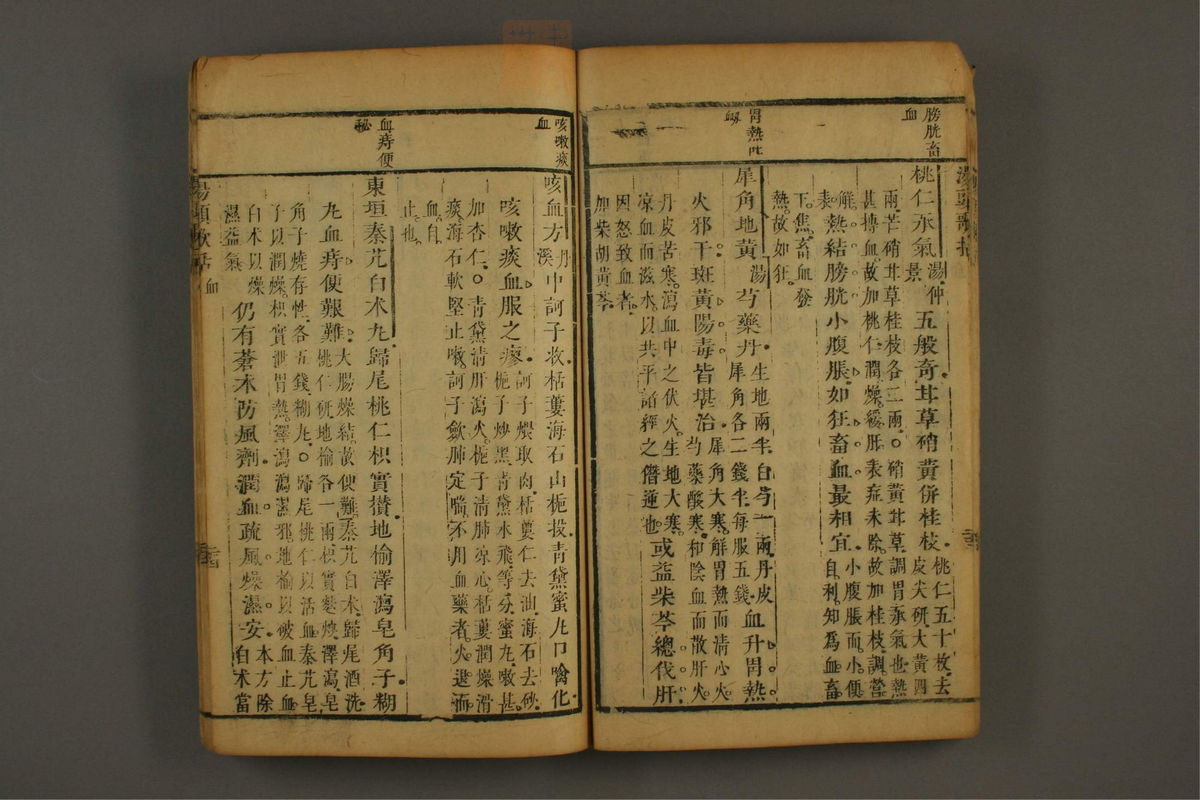 湯頭歌括
膀胱畜血
桃仁承氣湯仲景五般奇甘草硝黃併桂枝桃仁五十枚去皮尖研大黃四
兩芒硝甘草桂枝各二兩○硝黃甘草調胃承氣也熱
甚搏血故加桃仁潤燥緩肝表症未除故加桂枝調營
解表熱結膀胱小腹脹如狂畜血最相宜小腹脹而小便自利知為血畜
下焦畜血發
熱故如狂
胃熱吐衂
犀角地黃湯芍藥丹生地兩半白芍一兩丹皮犀角各二錢半每服五錢血升胃熱
火邪干斑黃陽毒皆堪治犀角大寒解胃熱而清心火芍藥酸寒和陰血而散肝火
丹皮苦寒瀉血中之伏火生地大寒
凉血而滋水以共平諸經之僭逆也或益柴芩總伐肝
因怒致血者
加柴胡黃芩
咳嗽痰血
咳血方丹溪中訶子收栝蔞海石山梔投青黛蜜丸口噙化
咳嗽痰血服之瘳訶子煨取肉栝蔞仁去油海石去砂梔子炒黑青黛水飛等分蜜丸嗽甚
加杏仁○青黛清肝瀉火梔子清肺凉心栝蔞潤燥滑
痰海石軟堅止嗽訶子歛肺定喘不用血藥者火退而
血自
止也
血痔便秘
東垣秦艽白朮丸歸尾桃仁枳實攅地榆澤瀉皂角子糊
丸血痔便艱難大腸燥結故便難秦艽白朮歸尾酒洗桃仁研地榆各一兩枳實麩炒澤瀉皂
角子燒存性各五錢糊丸○歸尾桃仁以活血秦艽皂
子以潤燥枳實泄胃熱澤瀉瀉濕邪地榆以破血止血
白朮以燥濕益氣仍有蒼朮防風劑潤血疏風燥濕安本方除白朮當
湯頭歌括
血